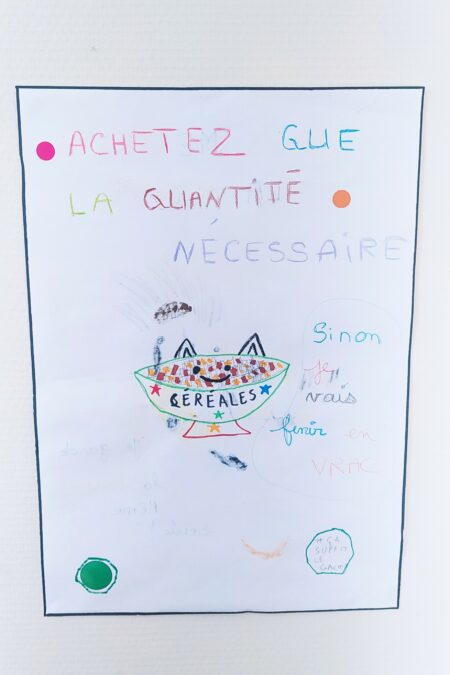 ACHETEZ QUE
LA QUANTITÉ
NÉCESSAIRE
CÉRÉALES
Sinon
je
vais
finir en
VRAC
ÇA
SUFFIT
LE